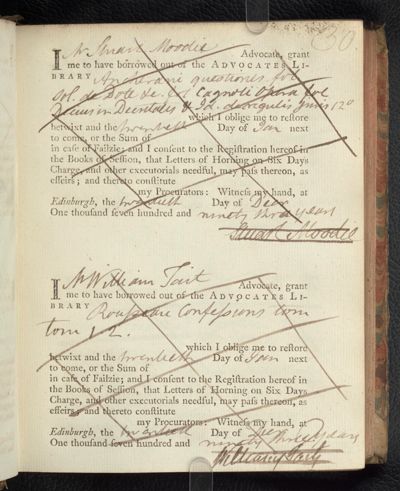 30.
I Mr Stuart Moodie Advocate, grant
me to have borrowed out of the ADVOCATES LI-
BRARY questiones fol
Sol. de Dote &c. fol Cagnoli Opera fol
Decius in Decretales & Id. de regulis juris 12o
which I oblige me to reſtore
betwixt and the twentieth Day of Jan next
to come, or the Sum of
in caſe of Failzie; and I conſent to the Regiſtration hereof in
the Books of Seſſion, that Letters of Horning on Six Days
Charge, and other executorials needful, may paſs thereon, as
effeirs; and thereto conſtitute
my Procurators: Witneſs my hand, at
Edinburgh, the twentieth Day of Decr
One thouſand ſeven hundred and ninety three years
Stuart Moodie
I Mr William Tait Advocate, grant
me to have borrowed out of the ADVOCATES LI-
BRARY Rousseau Confessions tom
tom 1. 2.
which I oblige me to reſtore
betwixt and the twentieth Day of Jan next
to come, or the Sum of
in caſe of Failzie; and I conſent to the Regiſtration hereof in
the Books of Seſſion, that Letters of Horning on Six Days
Charge, and other executorials needful, may paſs thereon, as
effeirs; and thereto conſtitute
my Procurators: Witneſs my hand, at
Edinburgh, the twentieth Day of Decr
One thouſand ſeven hundred and ninety three years
William Tait